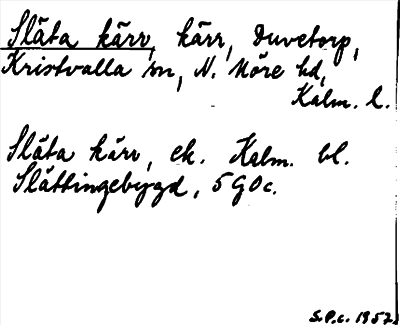 Släta kärr, kärr, Duvetorp,
Kristvalla sn, N. Möre hd,
Kalm. l.
Släta kärr, ek. Kalm. bl.
Slättingebygd, 5 G 0 c.
S.P.c. 1957